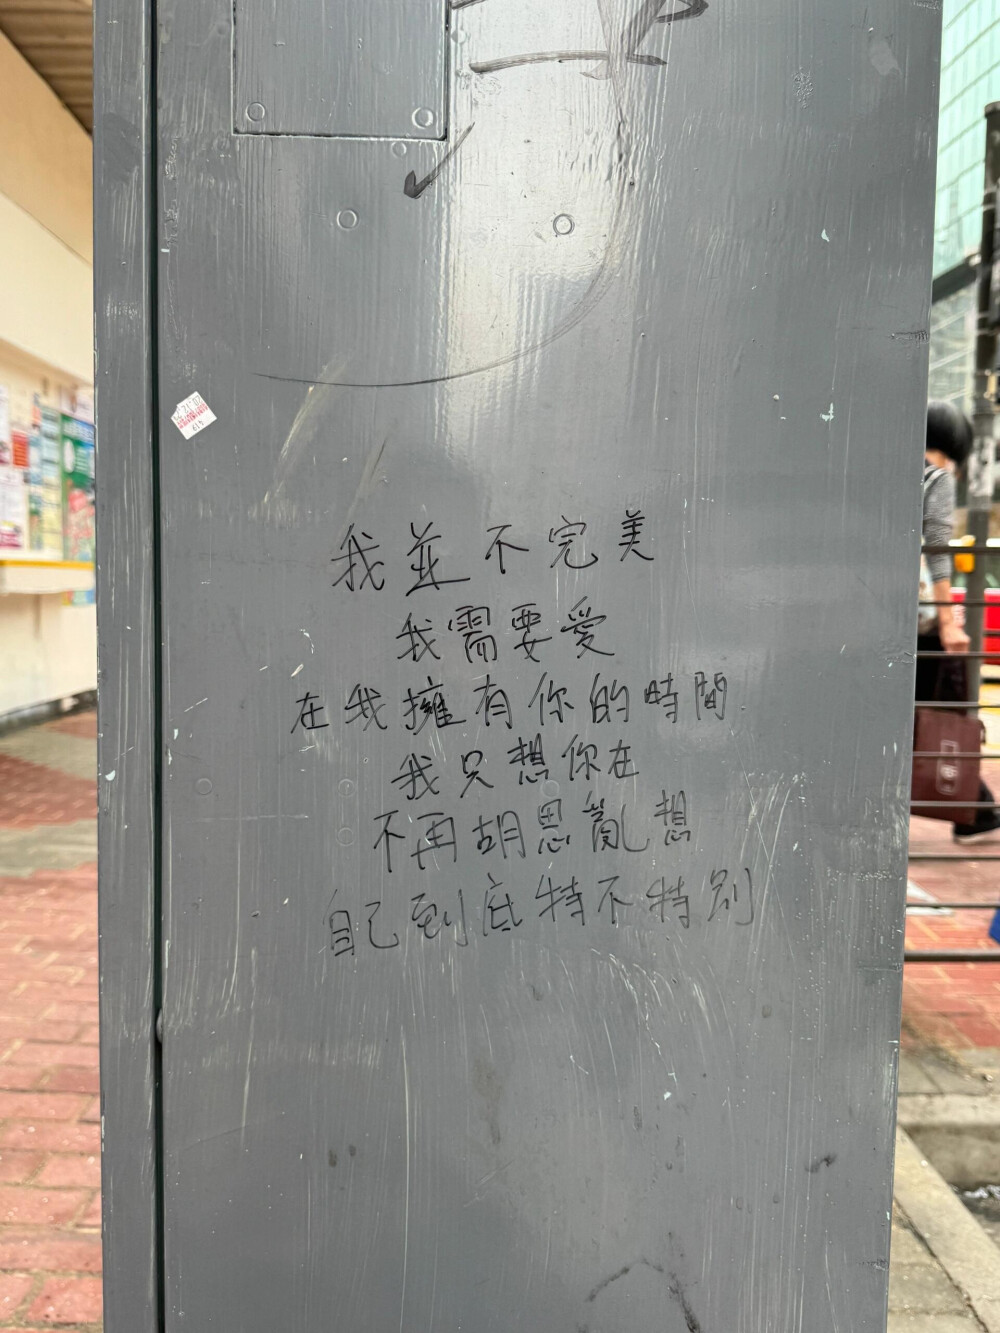 我並不完美
我需要愛
在我擁有你的時間
我只想你在
不再胡思亂想
自己到底特不特別